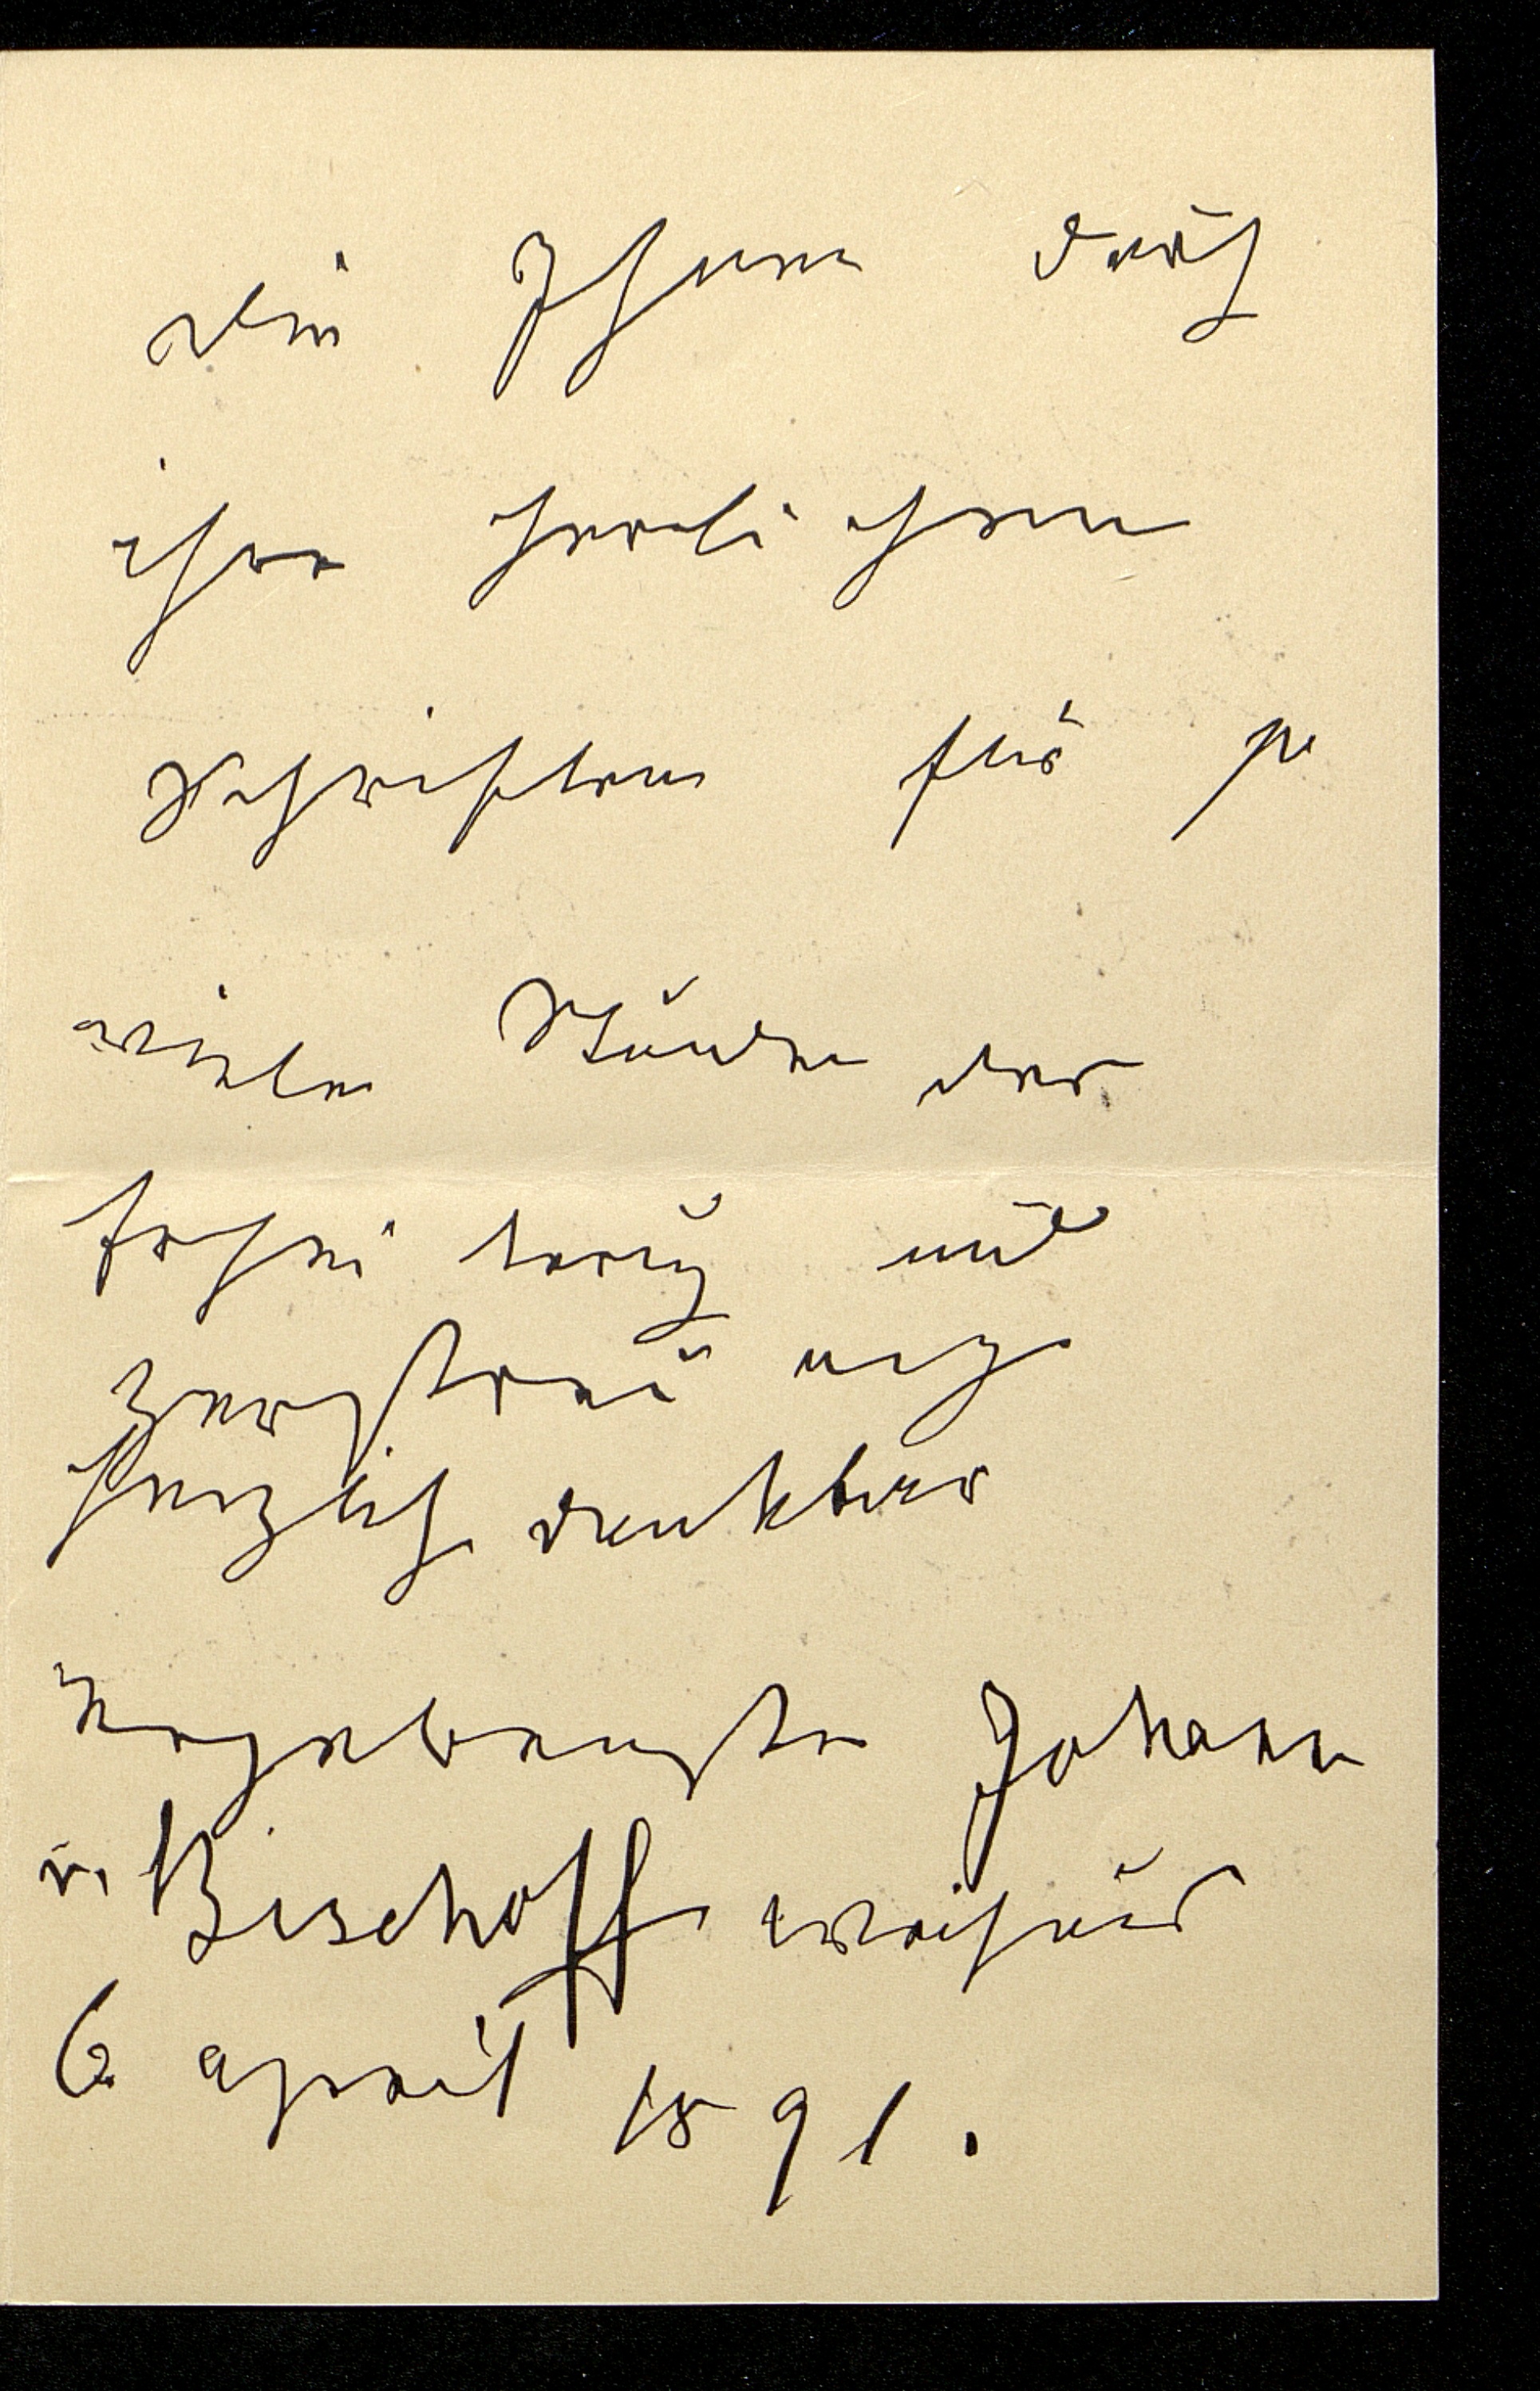 die Ihnen durch
ihre herrlichen
Schriften für so
viele Stunden der
Erheiterung und
Zerstreuung
herzlich dankbar
ergebenste Johann
v. Bischoff
6 april 1891.